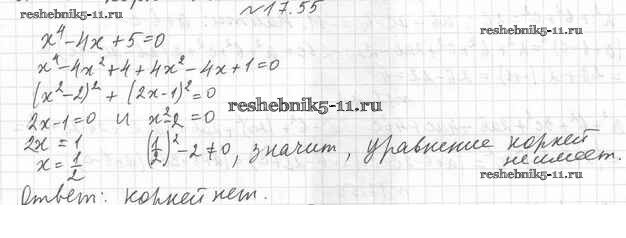 №17.55
reshebnik5-11.ru
x⁴-4x+5=0
reshebnik5-11.ru
x⁴-4x²+4+4x²-4x+1=0
(x²-2)²+(2x-1)²=0
reshebnik5-11.ru
2x-1=0 и x²-2=0
2x=1
x=1/2 (1/2)²-2≠0, значит, уравнение корней не имеет.
reshebnik5-11.ru
Ответ: корней нет.